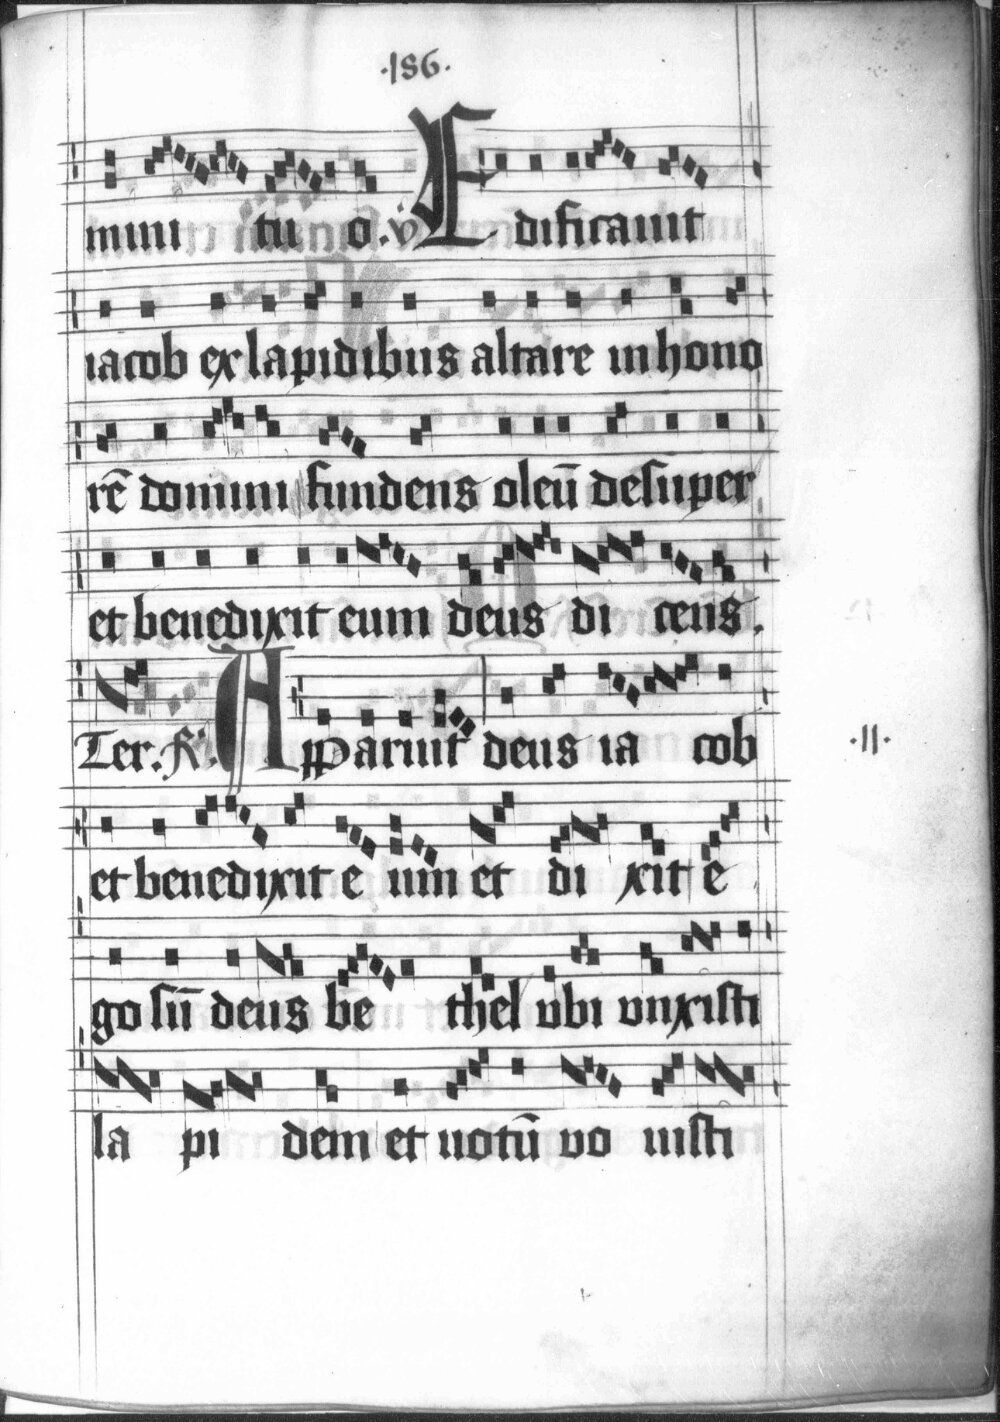 ·186·
mini tu o. v̇ Edificauit
iacob ex lapidibus altare in hono
rē domini fundens oleū desuper
et benedixit eum deus di cens.
Ter. R̃. Apparuit deus ia cob
·II·
et benedixit e um et di xit e
go sū deus be thel ubi unxisti
la pi dem et uotū uo uisti